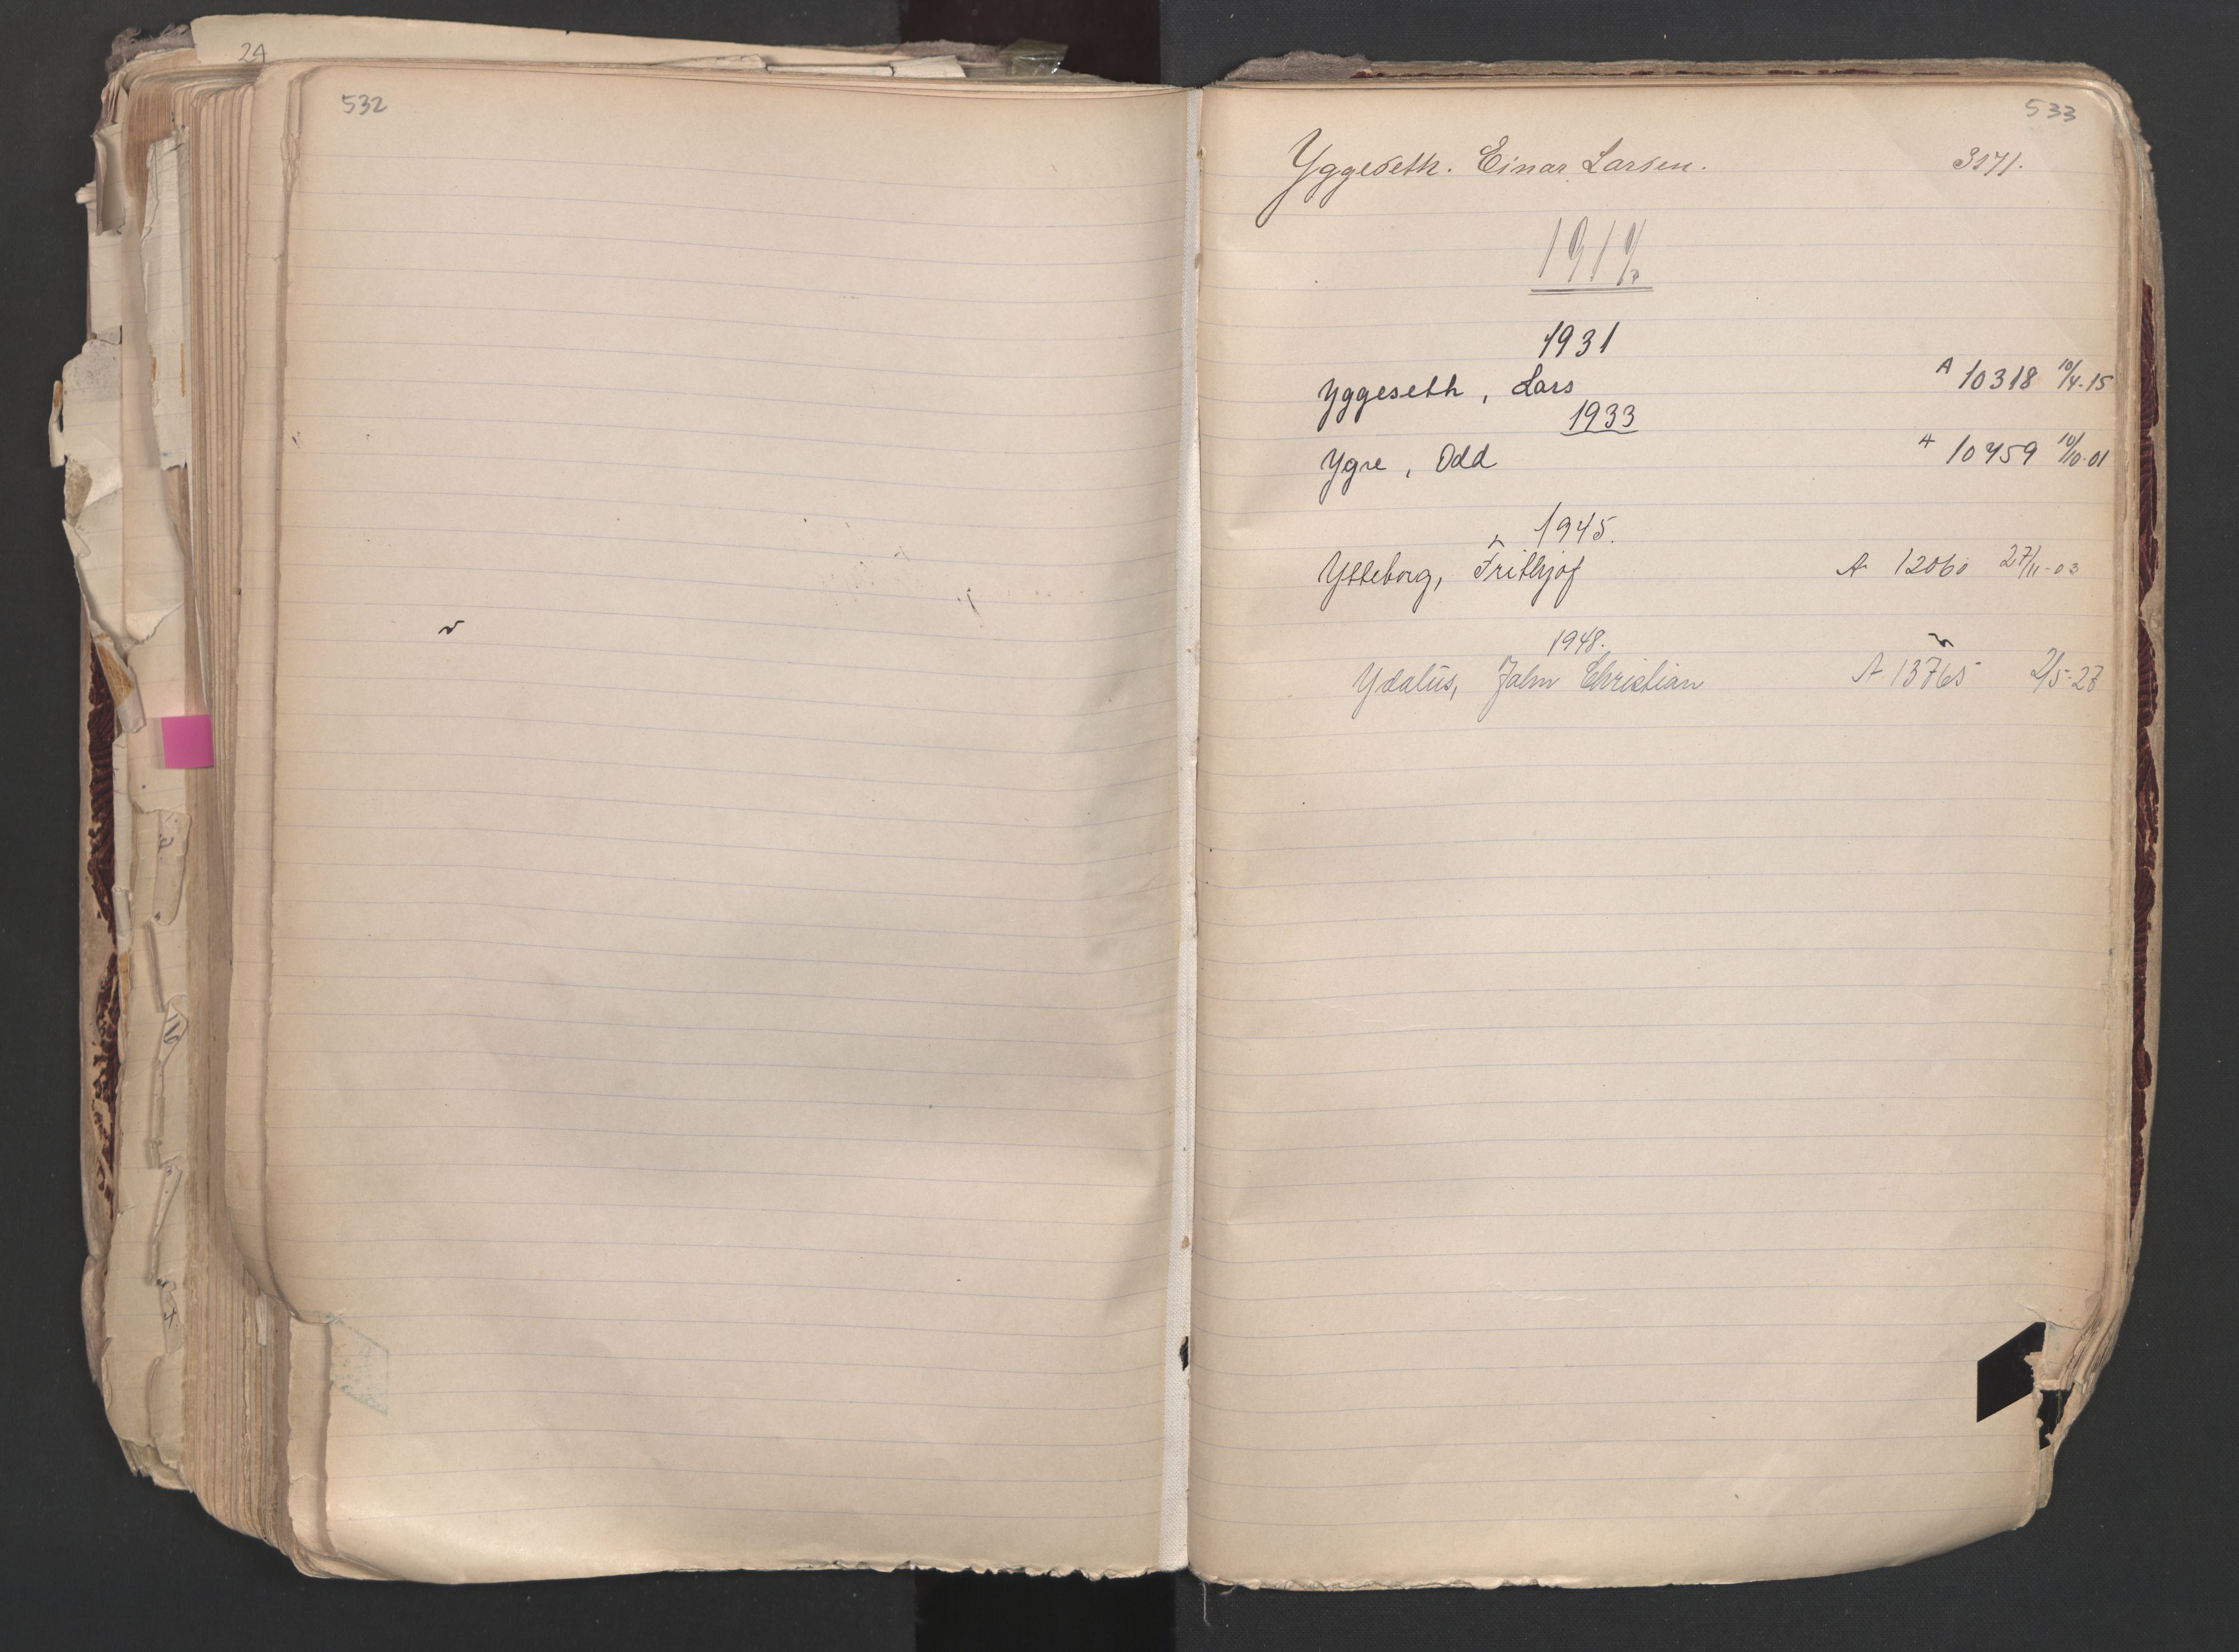 24
532
533
Yggeseth. Einar Larsen. 3571.
1931
Yggeseth, Lars A 10318 10/4-15
1933
Ygre, Odd A 10759 10/10-01
1945.
Ytteborg, Frithjof A 12060 27/11-03
1948.
Ydalus, John Christian A 13765 2/5-27